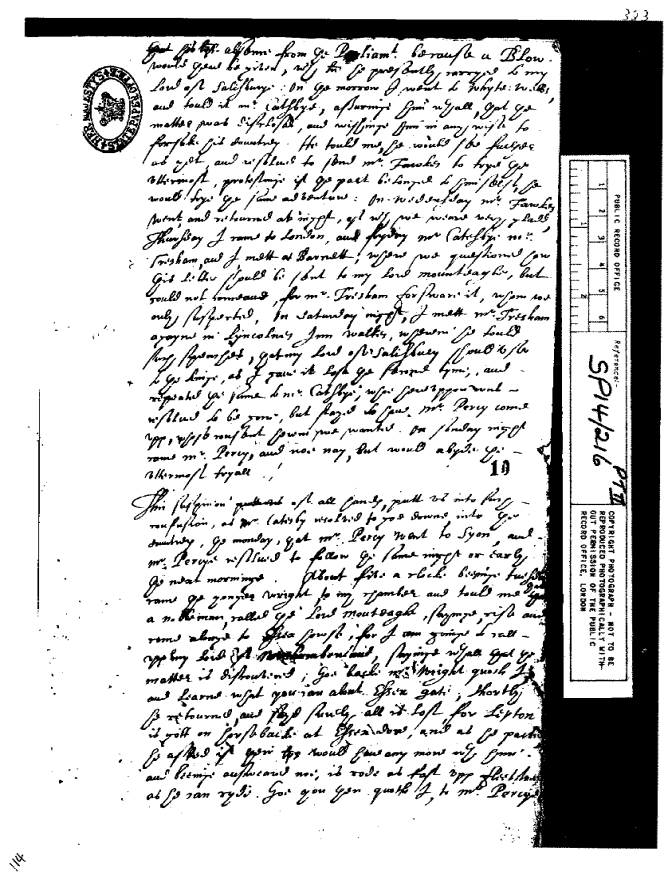 333
his absence from ye Parliamt. because a Blow
would then be given, wch he presently carryed to my
Lord of Salisbury. On ye morrow I went to Whyte Webbs
and tould it mr. Catsbye, assuringe him withall, yat ye
matter was disclosed, and wishinge him in any wise to
forsake his countrey. He tould me, he would see further
as yet, and resolued to send mr. Fawkes to trye ye
vttermost, protestinge if ye part belonged to himself, he
would trye ye same adventure: On wednesday mr. Fawkes
went and returned at night, of wch we weare very glad.
Thursday I came to London, and fryday mr Catsbye mr.
Tresham, and I mett at Barnett, where we questioned how
this letter should be sent to my Lord mounteagle, but
could not conceaue, for mr. Tresham forsware it, whom we
only suspected, On saturday night, I mett mr. Tresham
agayne in Lyncolnes Inn walkes, wherein he tould
such speeches, yat my Lord of Salisbury should vse
to ye kinge, as I gaue it lost ye second tyme, and
repeated ye same to mr. Catsbye, who hereuppon was
resolued to be gone, but stayed to haue mr. Percy come
vpp, whose consent herein we wanted. On sonday night
came mr. Percy, and noe nay, but would abyde ye
vttermost tryall.
10
This suspicion of all hands, putt vs into such
confusion, as mr. Catesby resolued to goe downe into ye
countrey, ye monday, yat mr. Percy went to Syon, and
mr. Percye resolued to follow ye same night or early
ye next morninge. About fiue a clock beinge tuesday
came ye yonger wright to my chamber and tould me
a nobleman, called ye Lord Mounteagle, sayinge, rise and
come alonge to Essex house, for I am goinge to call
vpp my Lord of Northumberland, sayinge withall yat ye
matter is discouered; Goe backe mr Wright quoth I
and Learne what you can about Essex gate; shortly
he returned, and sayd surely all is Lost, for Lepton
is gott on horsbacke at Essex dore, and as he parted
he asked if they would haue any more wth him,
and beinge answeared noe, is rode as fast vpp Fleetstreet
as he can ryde. Goe you then quoth I, to mr Percye
114
PUBLIC RECORD OFFICE
1
2
3
4
5
6
1
2
Reference:-
SP14/216
PT II
COPYRIGHT PHOTOGRAPH - NOT TO BE
REPRODUCED PHOTOGRAPHICALLY WITH-
OUT PERMISSION OF THE PUBLIC
RECORD OFFICE, LONDON